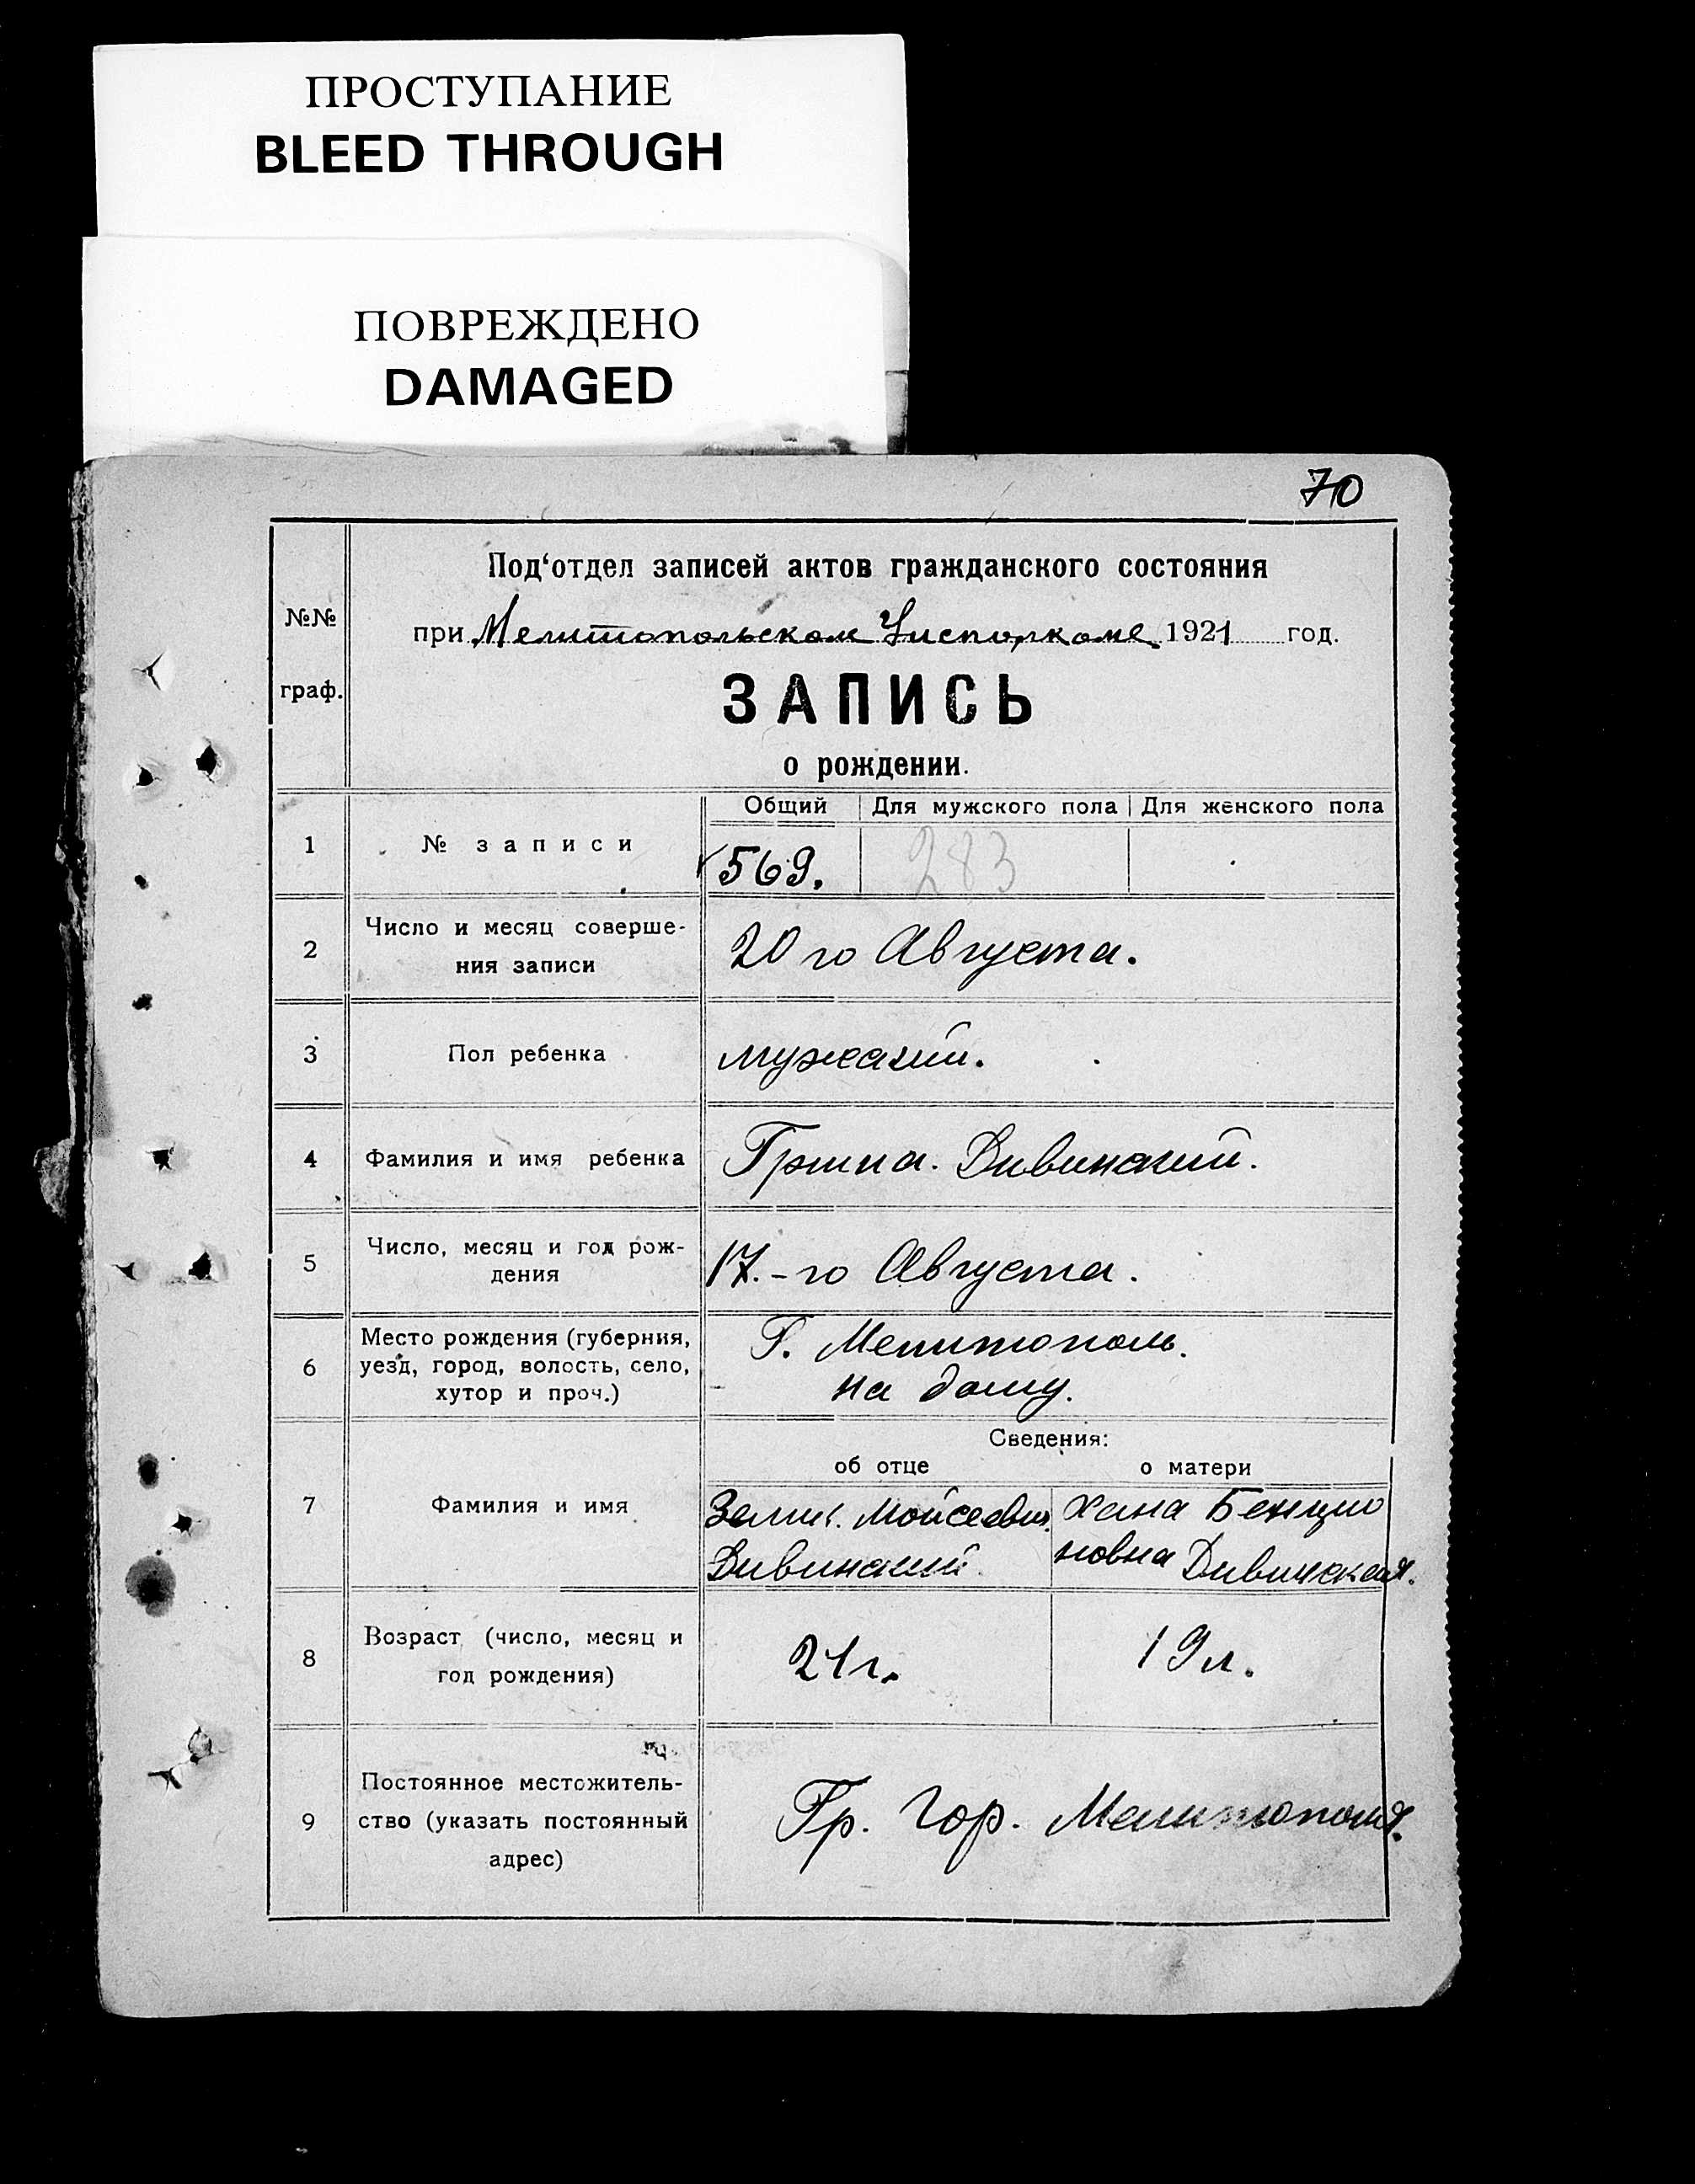 ПРОСТУПАНИЕ
BLEED THROUGH
ПОВРЕЖДЕНО
DAMAGED
70
№№
граф.
Под‘отдел записей актов гражданского состояния
при Мелитопольском Уисполкоме 1921 год.
ЗАПИСЬ
о рождении.
Общий Для мужского пола Для женского пола
1 № записи 569. 283
2 Число и месяц соверше-
ния записи
20 го Августа.
3 Пол ребенка мужский.
4 Фамилия и имя ребенка Гриша. Дивинский.
5 Число, месяц и год рож-
дения
17.-го Августа.
6 Место рождения (губерния,
уезд, город, волость, село,
хутор и проч.)
Г. Мелитополь.
на дому.
Сведения:
об отце о матери
7 Фамилия и имя
Зелик. Мойсеевич.
Дивинский.
Хана Бенцио
новна Дивинская.
8 Возраст (число, месяц и
год рождения)
21 г. 19 л.
9 Постоянное местожитель-
ство (указать постоянный
адрес)
Гр. гор. Мелитополя.